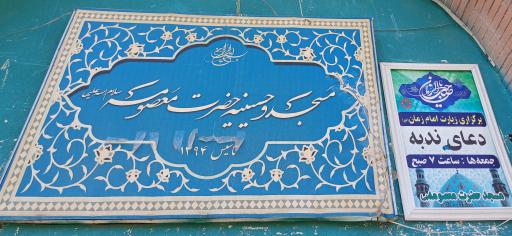 مسجد و حسینیه حضرت معصومه سلام الله علیها
تاسیس ۱۳۹۴
یا صاحب الزمان
برگزاری زیارت امام زمان (عج)
دعای ندبه
جمعه ها : ساعت ۷ صبح
مسجد حضرت معصومه (س)